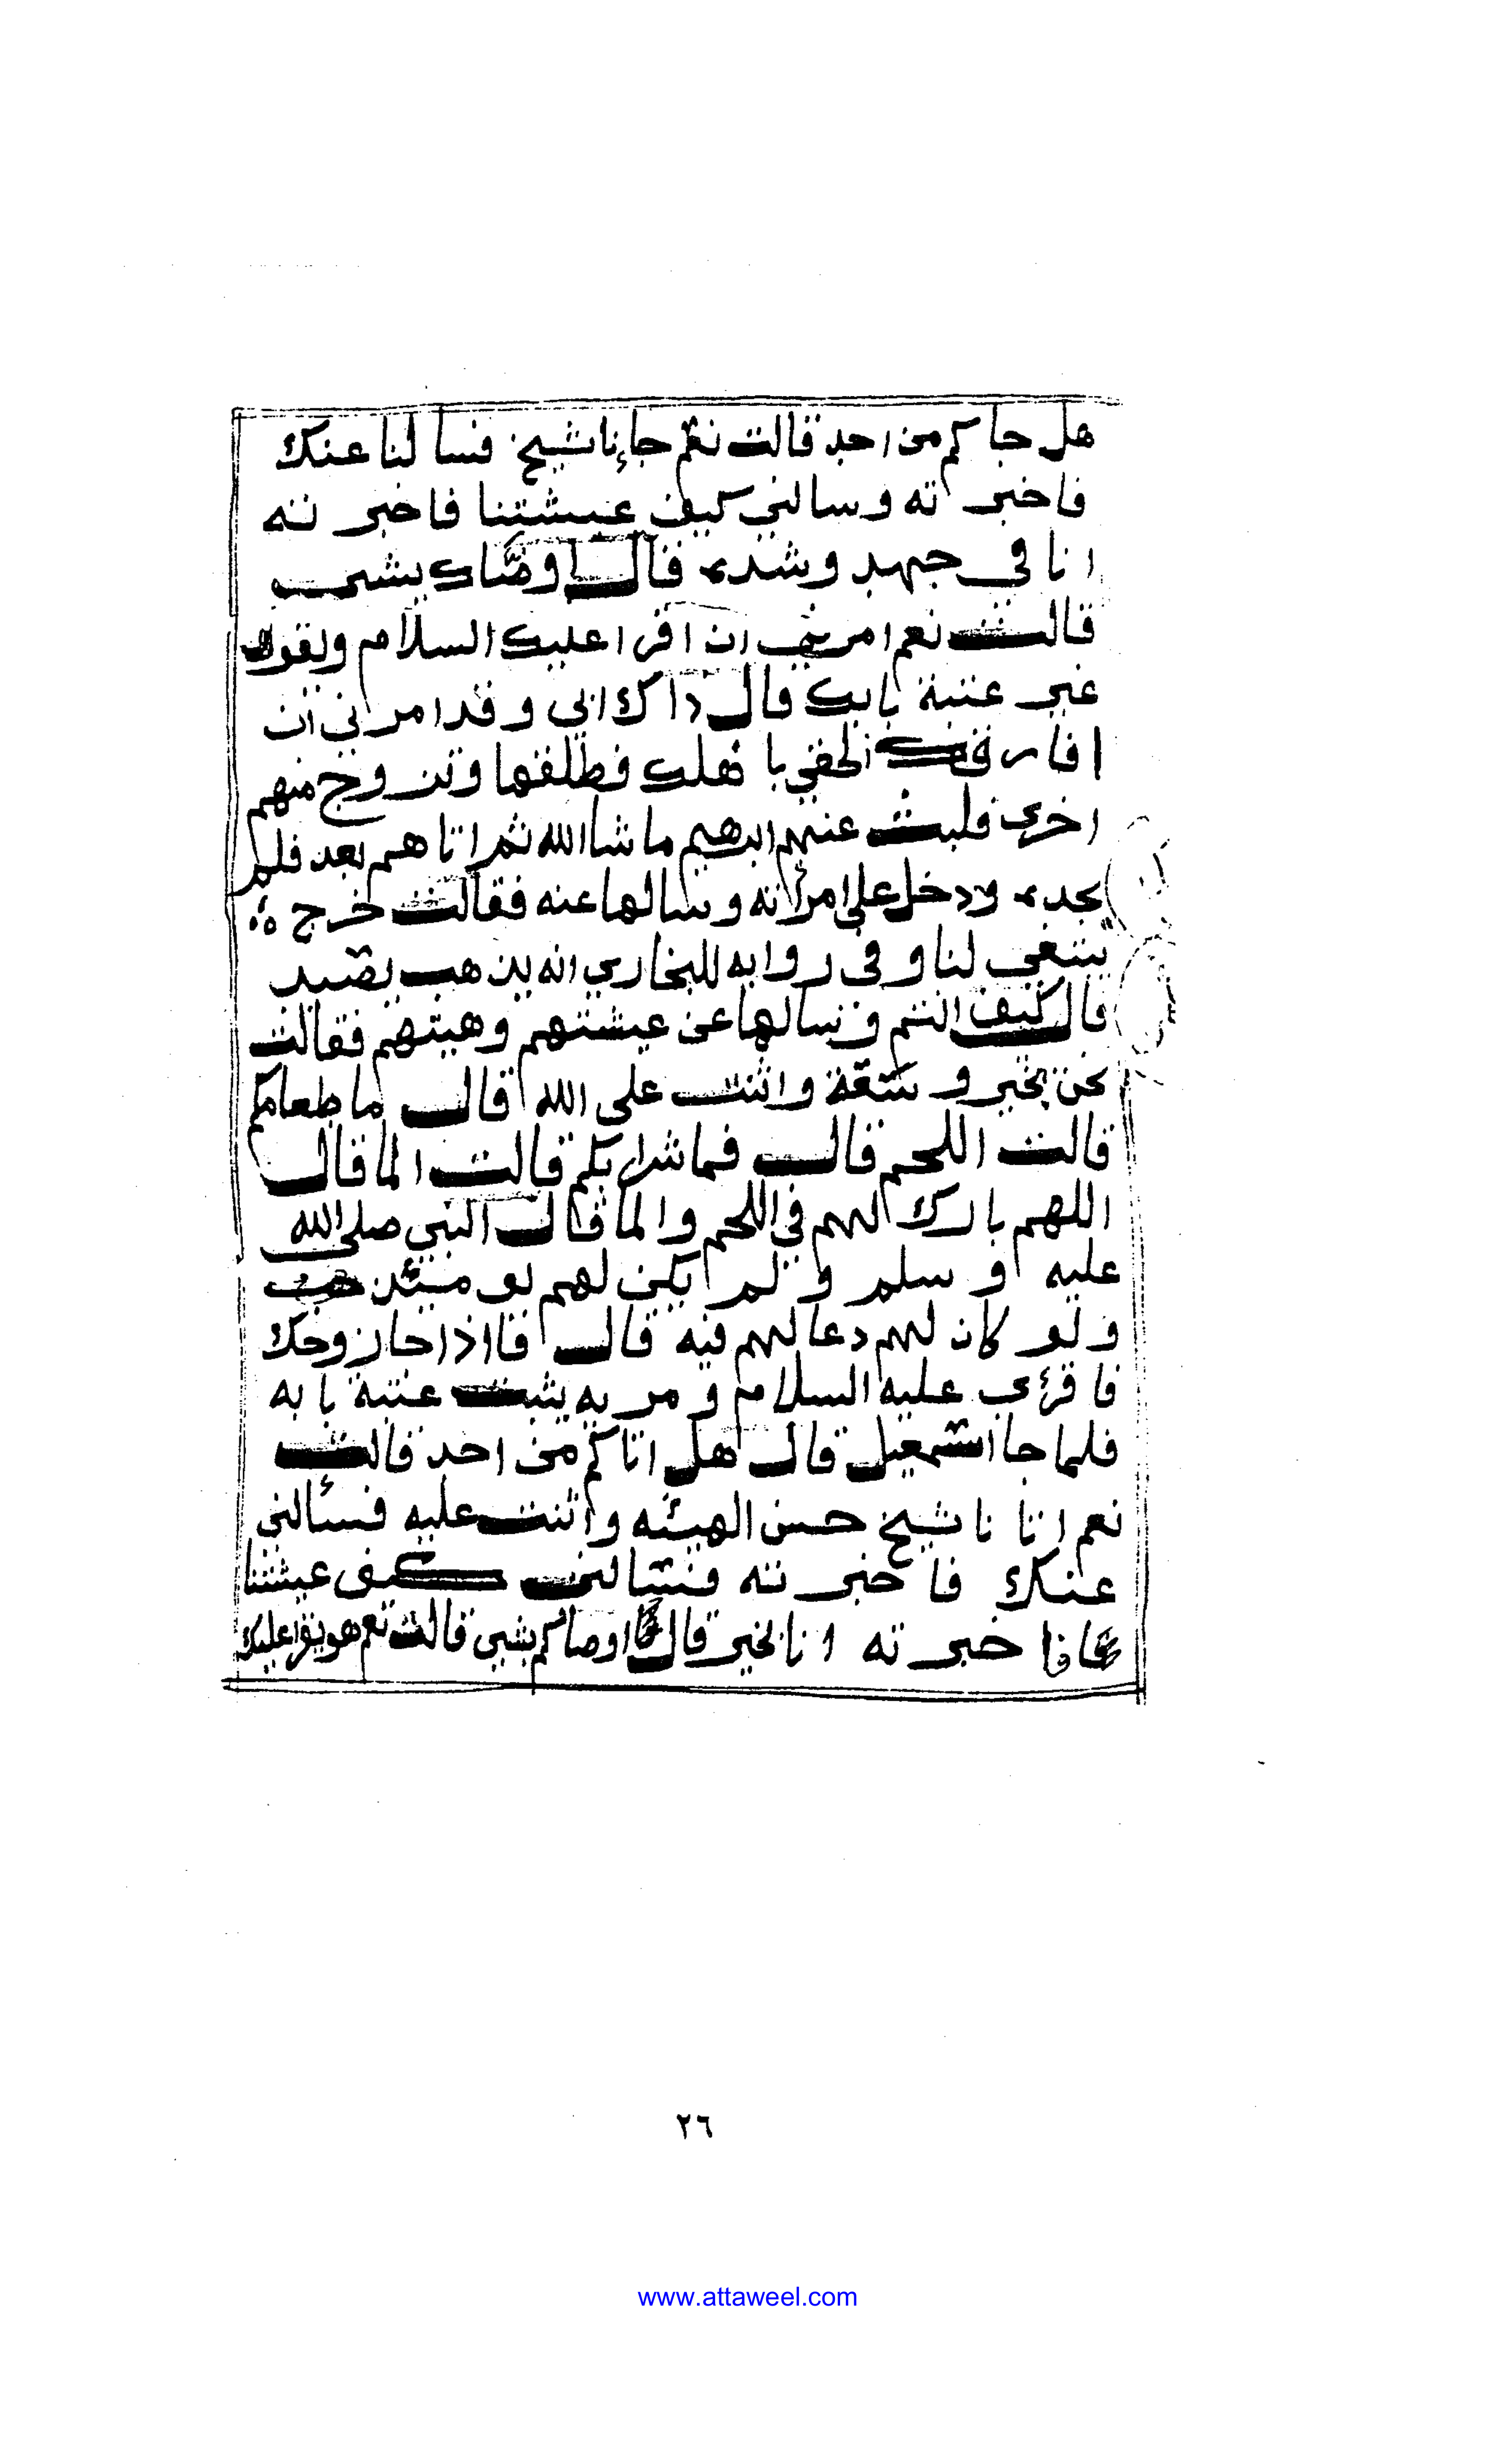 هل جاكم من احد قالت نعم جإنا شيخ فسالنا عنك
فاخبر ته وسالني كيف عيشتنا فاخبر تته
انا في جهد وشده قال اوصّاك بشي
قالت نعم امرني ان اقرا عليك السلام ويقول
غير عتبة بابك قال ذاك ابي وقد امرني ان
افارقك الحقي باهلك فطلقها وتزوج منهم
اخرى فلبث عنهم ابرهيم ماشاالله ثم اتاهم بعد فلم
يجده ودخل على امراته وسالها عنه فقالت خرج
يبتغي لنا وفي روايه للبخاري انه يذهب يصيد
قال كيف انتم وسالها عن عيشتهم وهيتهم فقالت
نحن بخير وسَعَة واثنت على الله قال ما طعامكم
قالت اللحم قال فما شرابكم قالت الما قال
اللهم بارك لهم في اللحم والما قال النبي صلى الله
عليه و سلم و لم يكن لهم يومئذ حب
ولو كان لهم دعا لهم فيه قال فااذا جا زوجك
فاقرئي عليه السلام ومريه يثبت عتبة بابه
فلما جا اسمعيل قال هل اتاكم من احد قالت
نعم اتا نا شيخ حسن الهيئه واثنت عليه فسئالني
عنك فاخبر تته فسالني كيف عيشتنا
فاخبر ته انا بخير قال اوصاكم بشي قالت نعم هو يقرا عليك
٢٦
www.attaweel.com